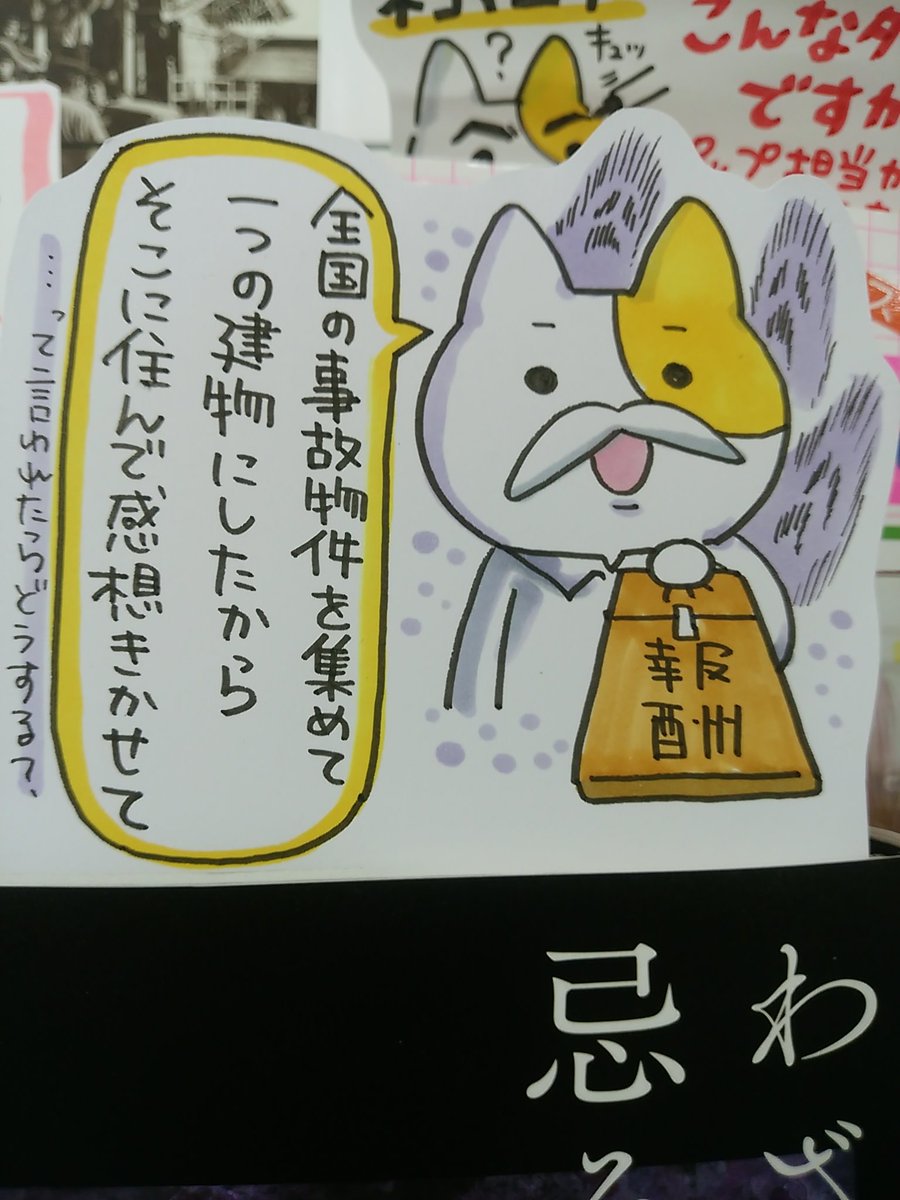 全国の事故物件を集めて
一つの建物にしたから
そこに住んで感想きかせて
…って言われたらどうするて、
報酬
?
キュッ
こんなタ
ですか
ップ担当か
わざ
忌